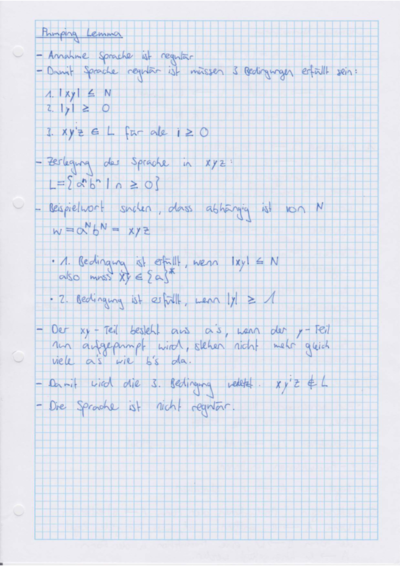 Pumping Lemma
- Annahme Sprache ist regulär
- Damit Sprache regulär ist müssen 3 Bedingungen erfüllt sein:
1. |xy| ≤ N
2. |y| ≥ 0
3. xyⁱz ∈ L für alle i ≥ 0
- Zerlegung der Sprache in xyz:
L={aⁿbⁿ | n ≥ 0}
- Beispielwort suchen, dass abhängig ist von N
w = aᴺbᴺ = xyz
• 1. Bedingung ist erfüllt, wenn |xy| ≤ N
also muss xy ∈ {a}*
• 2. Bedingung ist erfüllt, wenn |y| ≥ 1
- Der xy-Teil besteht aus a's, wenn der y-Teil
nun aufgepumpt wird, stehen nicht mehr gleich
viele a's wie b's da.
- Damit wird die 3. Bedingung verletzt. xyⁱz ∉ L
- Die Sprache ist nicht regulär.